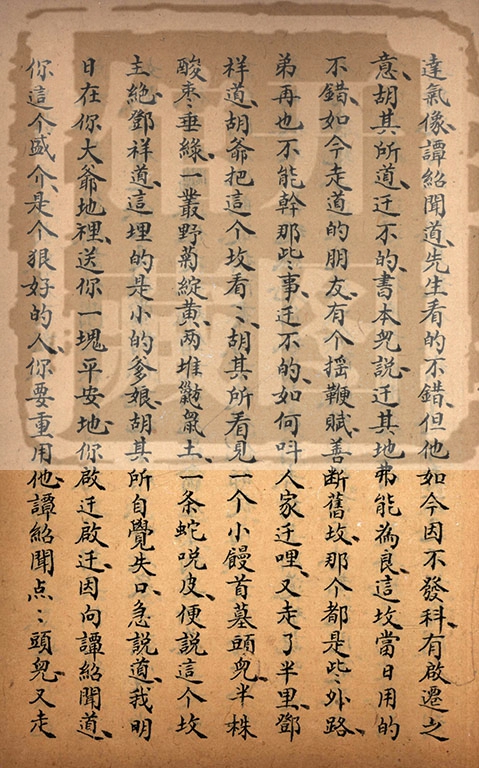 達氣像譚紹聞道先生看的不錯但他如今因不發科有啟遷之
意胡其所道迁不的書本兒說迁其地弗能為良這坟當日用的
不錯如今走道的朋友有个摇鞭賦善断舊坟那个都是些外路
弟再也不能幹那些事迁不的如何叫人家迁哩又走了半里鄧
祥道胡爺把這个坟看〻胡其所看見一个小饅首墓頭兒半株
酸枣垂緑一叢野菊綻黄两堆鼢鼠土一条蛇哾皮便說這个坟
主絕鄧祥道這埋的是小的爹娘胡其所自覺失口急說道我明
日在你大爺地裡送你一塊平安地你啟迁啟迁因向譚紹聞道
你這个盛介是个狠好的人你要重用他譚紹聞点〻頭兒又走